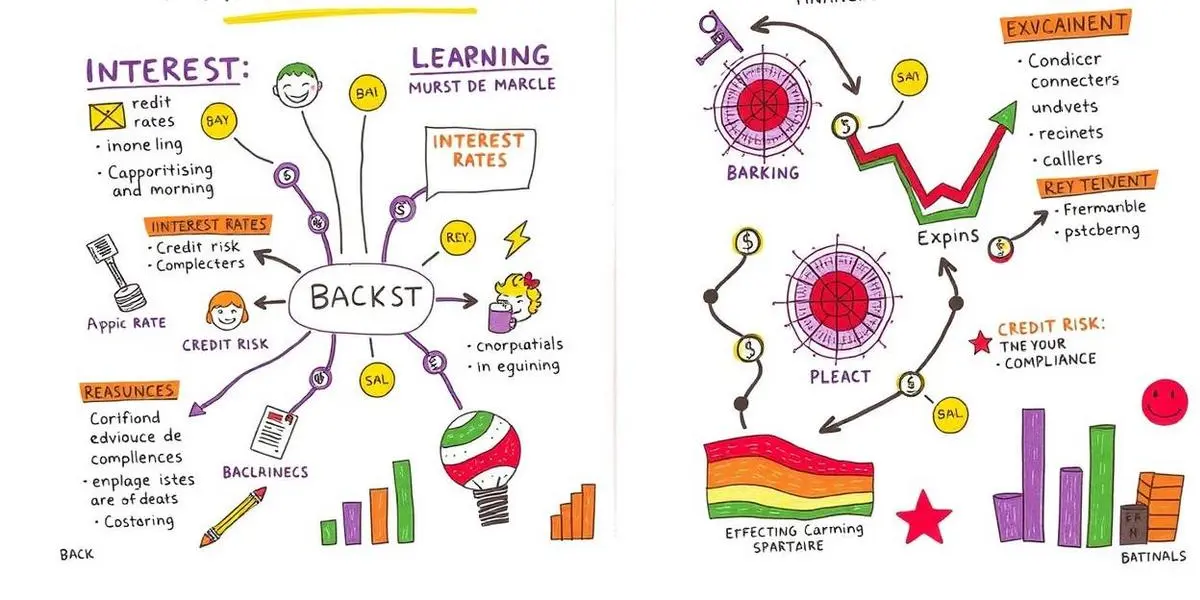 INTEREST:
redit
rates
• inone ling
• Capporitising
and morning
BAY
BAI
LEARNING
MURST DE MARCLE
INTEREST
RATES
IINTEREST RATES
• Credit risk
• Complecters
REY.
Appic RATE
CREDIT RISK
BACKST
• cnorpuatials
• in eguining
SAL
REASUNCES
Corifiond
edviouce de
compllences
• enplage istes
are of deats
• Costaring
BACLAINECS
BACK
BARKING
SAM
EXVCAINENT
• Condicer
connecters
undvets
• recinets
• calllers
REY TEIVENT
• Frermanble
• pstcberng
Expins
PLEACT
CREDIT RISK:
TNE YOUR
• COMPLIANCE
SAL
EFFECTING Carming
SPARTAIRE
BATINALS